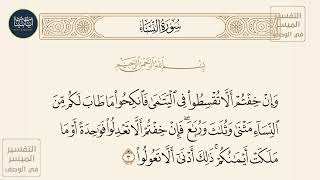 التفسير
الميسر
في الوصف
سُورَةُ النِّسَاءِ
بِسْمِ اللَّهِ الرَّحْمَٰنِ الرَّحِيمِ
وَإِنْ خِفْتُمْ أَلَّا تُقْسِطُوا فِي الْيَتَامَىٰ فَانكِحُوا مَا طَابَ لَكُم مِّنَ
النِّسَاءِ مَثْنَىٰ وَثُلَاثَ وَرُبَاعَ ۖ فَإِنْ خِفْتُمْ أَلَّا تَعْدِلُوا فَوَاحِدَةً أَوْ مَا
مَلَكَتْ أَيْمَانُكُمْ ۚ ذَٰلِكَ أَدْنَىٰ أَلَّا تَعُولُوا ٣
التفسير
الميسر
في الوصف